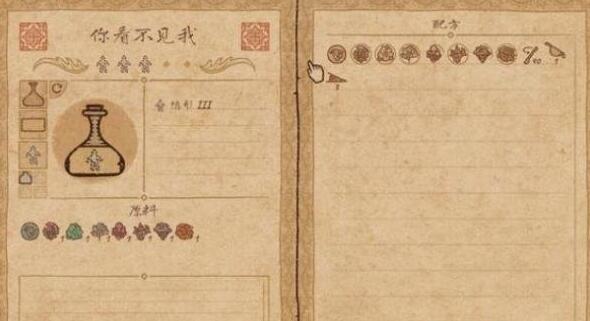 你看不见我
隐形 III
原料
配方